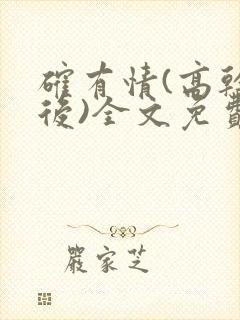 確有情(高幹
後)全文免費
嚴家芝